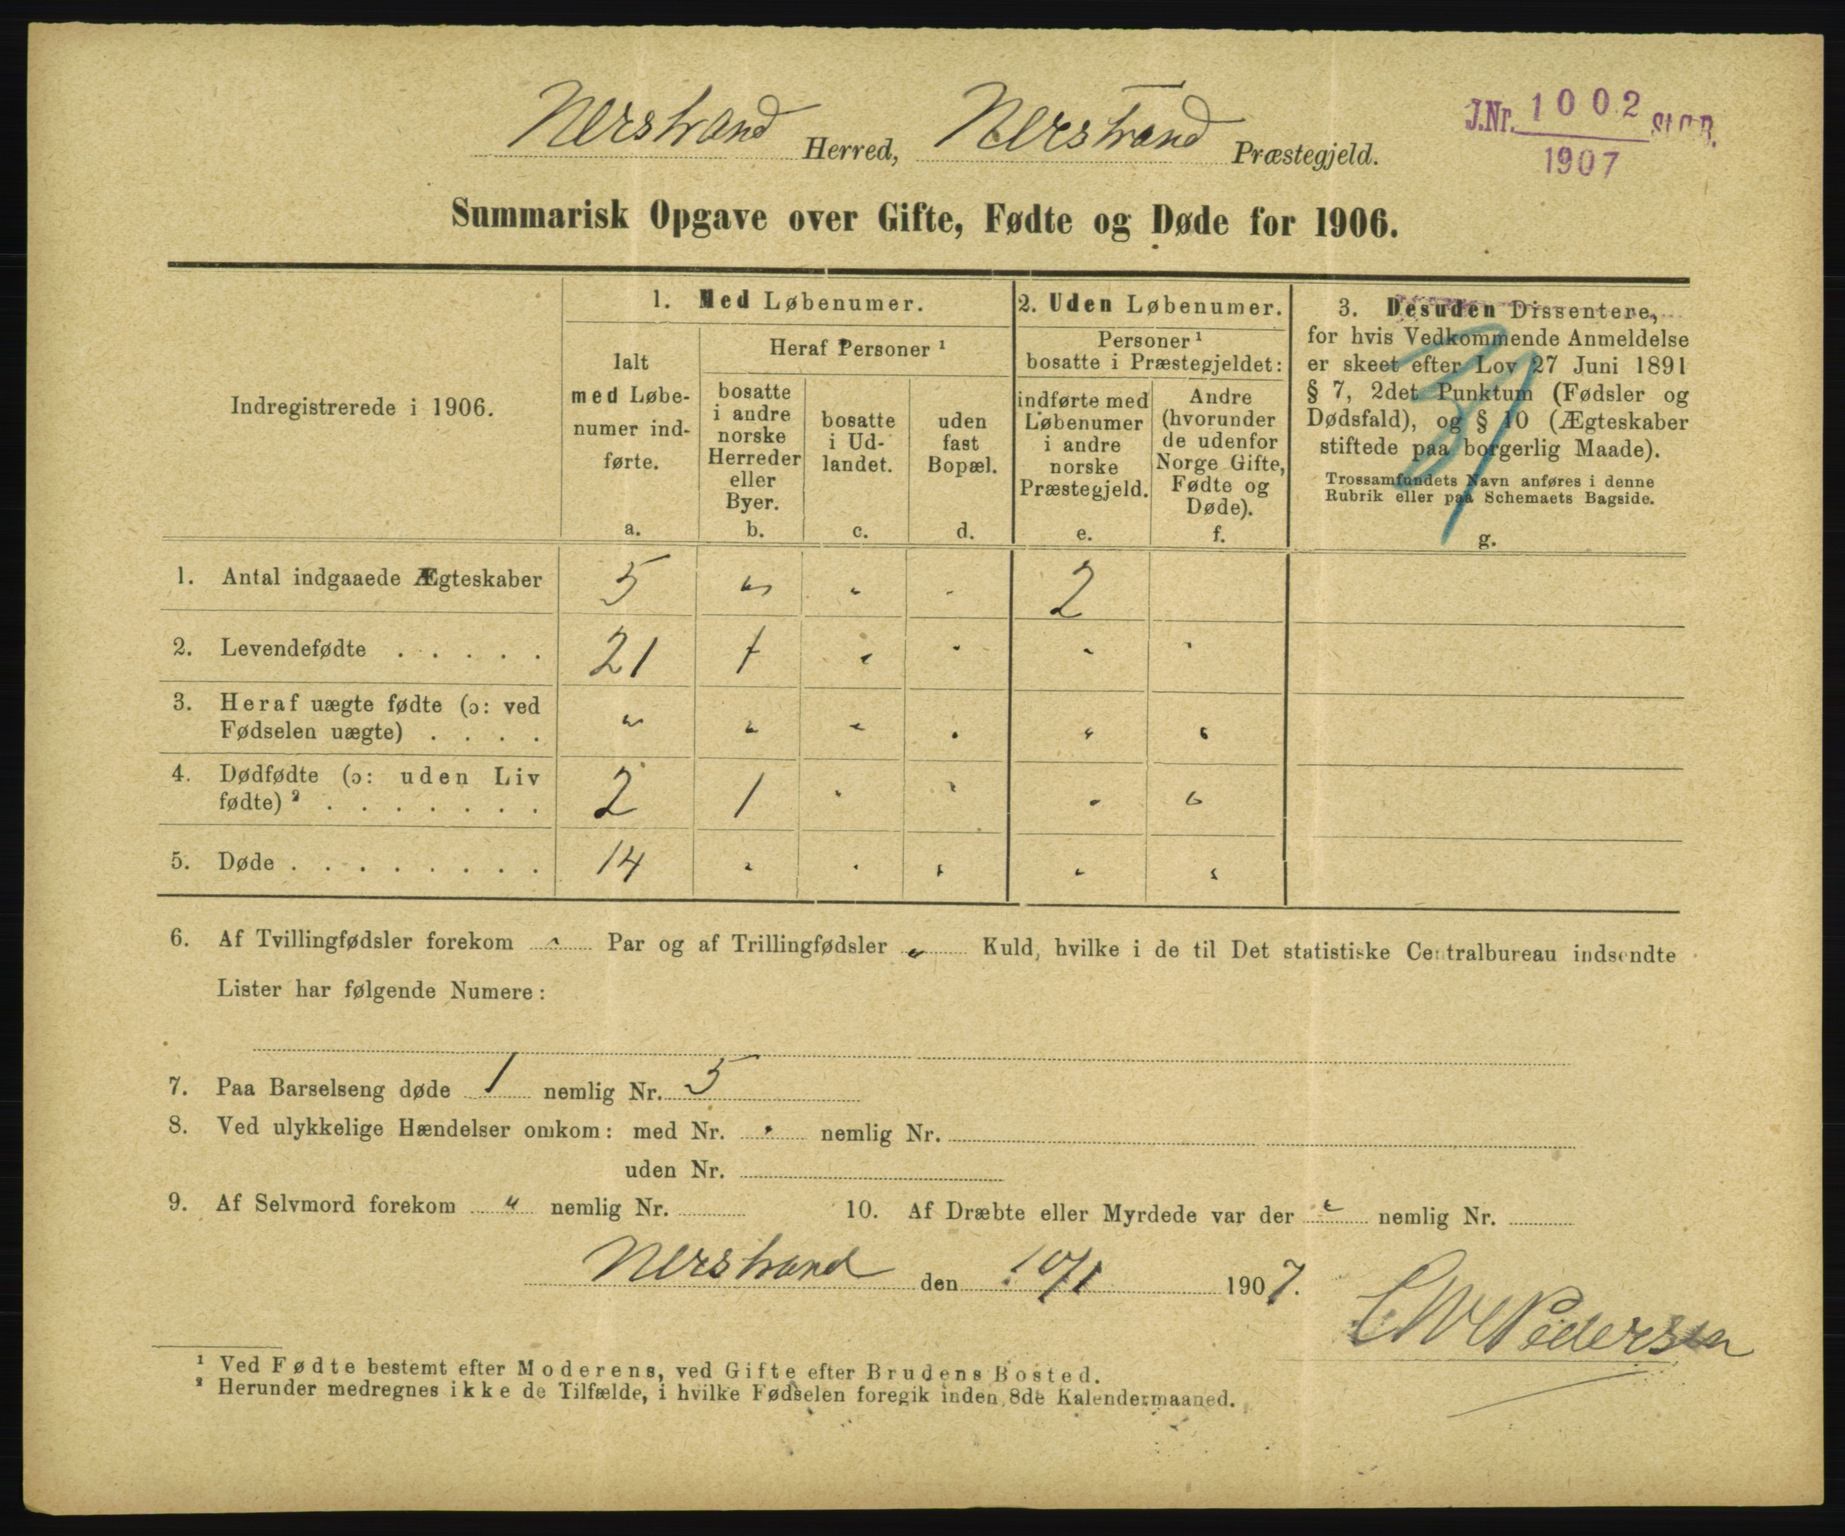 Nerstrand Herred, Nerstrand Præstegjeld.
J.Nr. 1002 St.C.B.
1907
Summarisk Opgave over Gifte, Fødte og Døde for 1906.
Indregistrerede i 1906.
1. Med Løbenumer.
Ialt
med Løbe-
numer ind-
førte.
a.
Heraf Personer ¹
bosatte
i andre
norske
Herreder
eller
Byer.
b.
bosatte
i Ud-
landet.
c.
uden
fast
Bopæl.
d.
2. Uden Løbenumer.
Personer ¹
bosatte i Præstegjeldet:
indførte med
Løbenumer
i andre
norske
Præstegjeld.
e.
Andre
(hvorunder
de udenfor
Norge Gifte,
Fødte og
Døde).
f.
3. Desuden Dissentere,
for hvis Vedkommende Anmeldelse
er skeet efter Lov 27 Juni 1891
§ 7, 2det Punktum (Fødsler og
Dødsfald), og § 10 (Ægteskaber
stiftede paa borgerlig Maade).
Trossamfundets Navn anføres i denne
Rubrik eller paa Schemaets Bagside.
g.
1. Antal indgaaede Ægteskaber 5 " " " 2
2. Levendefødte . . . . . 21 1 " " " "
3. Heraf uægte fødte (ɔ: ved
Fødselen uægte) . . . . " " " " " "
4. Dødfødte (ɔ: uden Liv
fødte) ² . . . . . . . 2 1 " " " "
5. Døde . . . . . . . . 14 " " " " "
6. Af Tvillingfødsler forekom " Par og af Trillingfødsler " Kuld, hvilke i de til Det statistiske Centralbureau indsendte
Lister har følgende Numere:
7. Paa Barselseng døde 1 nemlig Nr. 5
8. Ved ulykkelige Hændelser omkom: med Nr. " nemlig Nr.
uden Nr.
9. Af Selvmord forekom " nemlig Nr. 10. Af Dræbte eller Myrdede var der " nemlig Nr.
Nerstrand den 10/1 1907.
Pedersen
¹ Ved Fødte bestemt efter Moderens, ved Gifte efter Brudens Bosted.
² Herunder medregnes ikke de Tilfælde, i hvilke Fødselen foregik inden 8de Kalendermaaned.